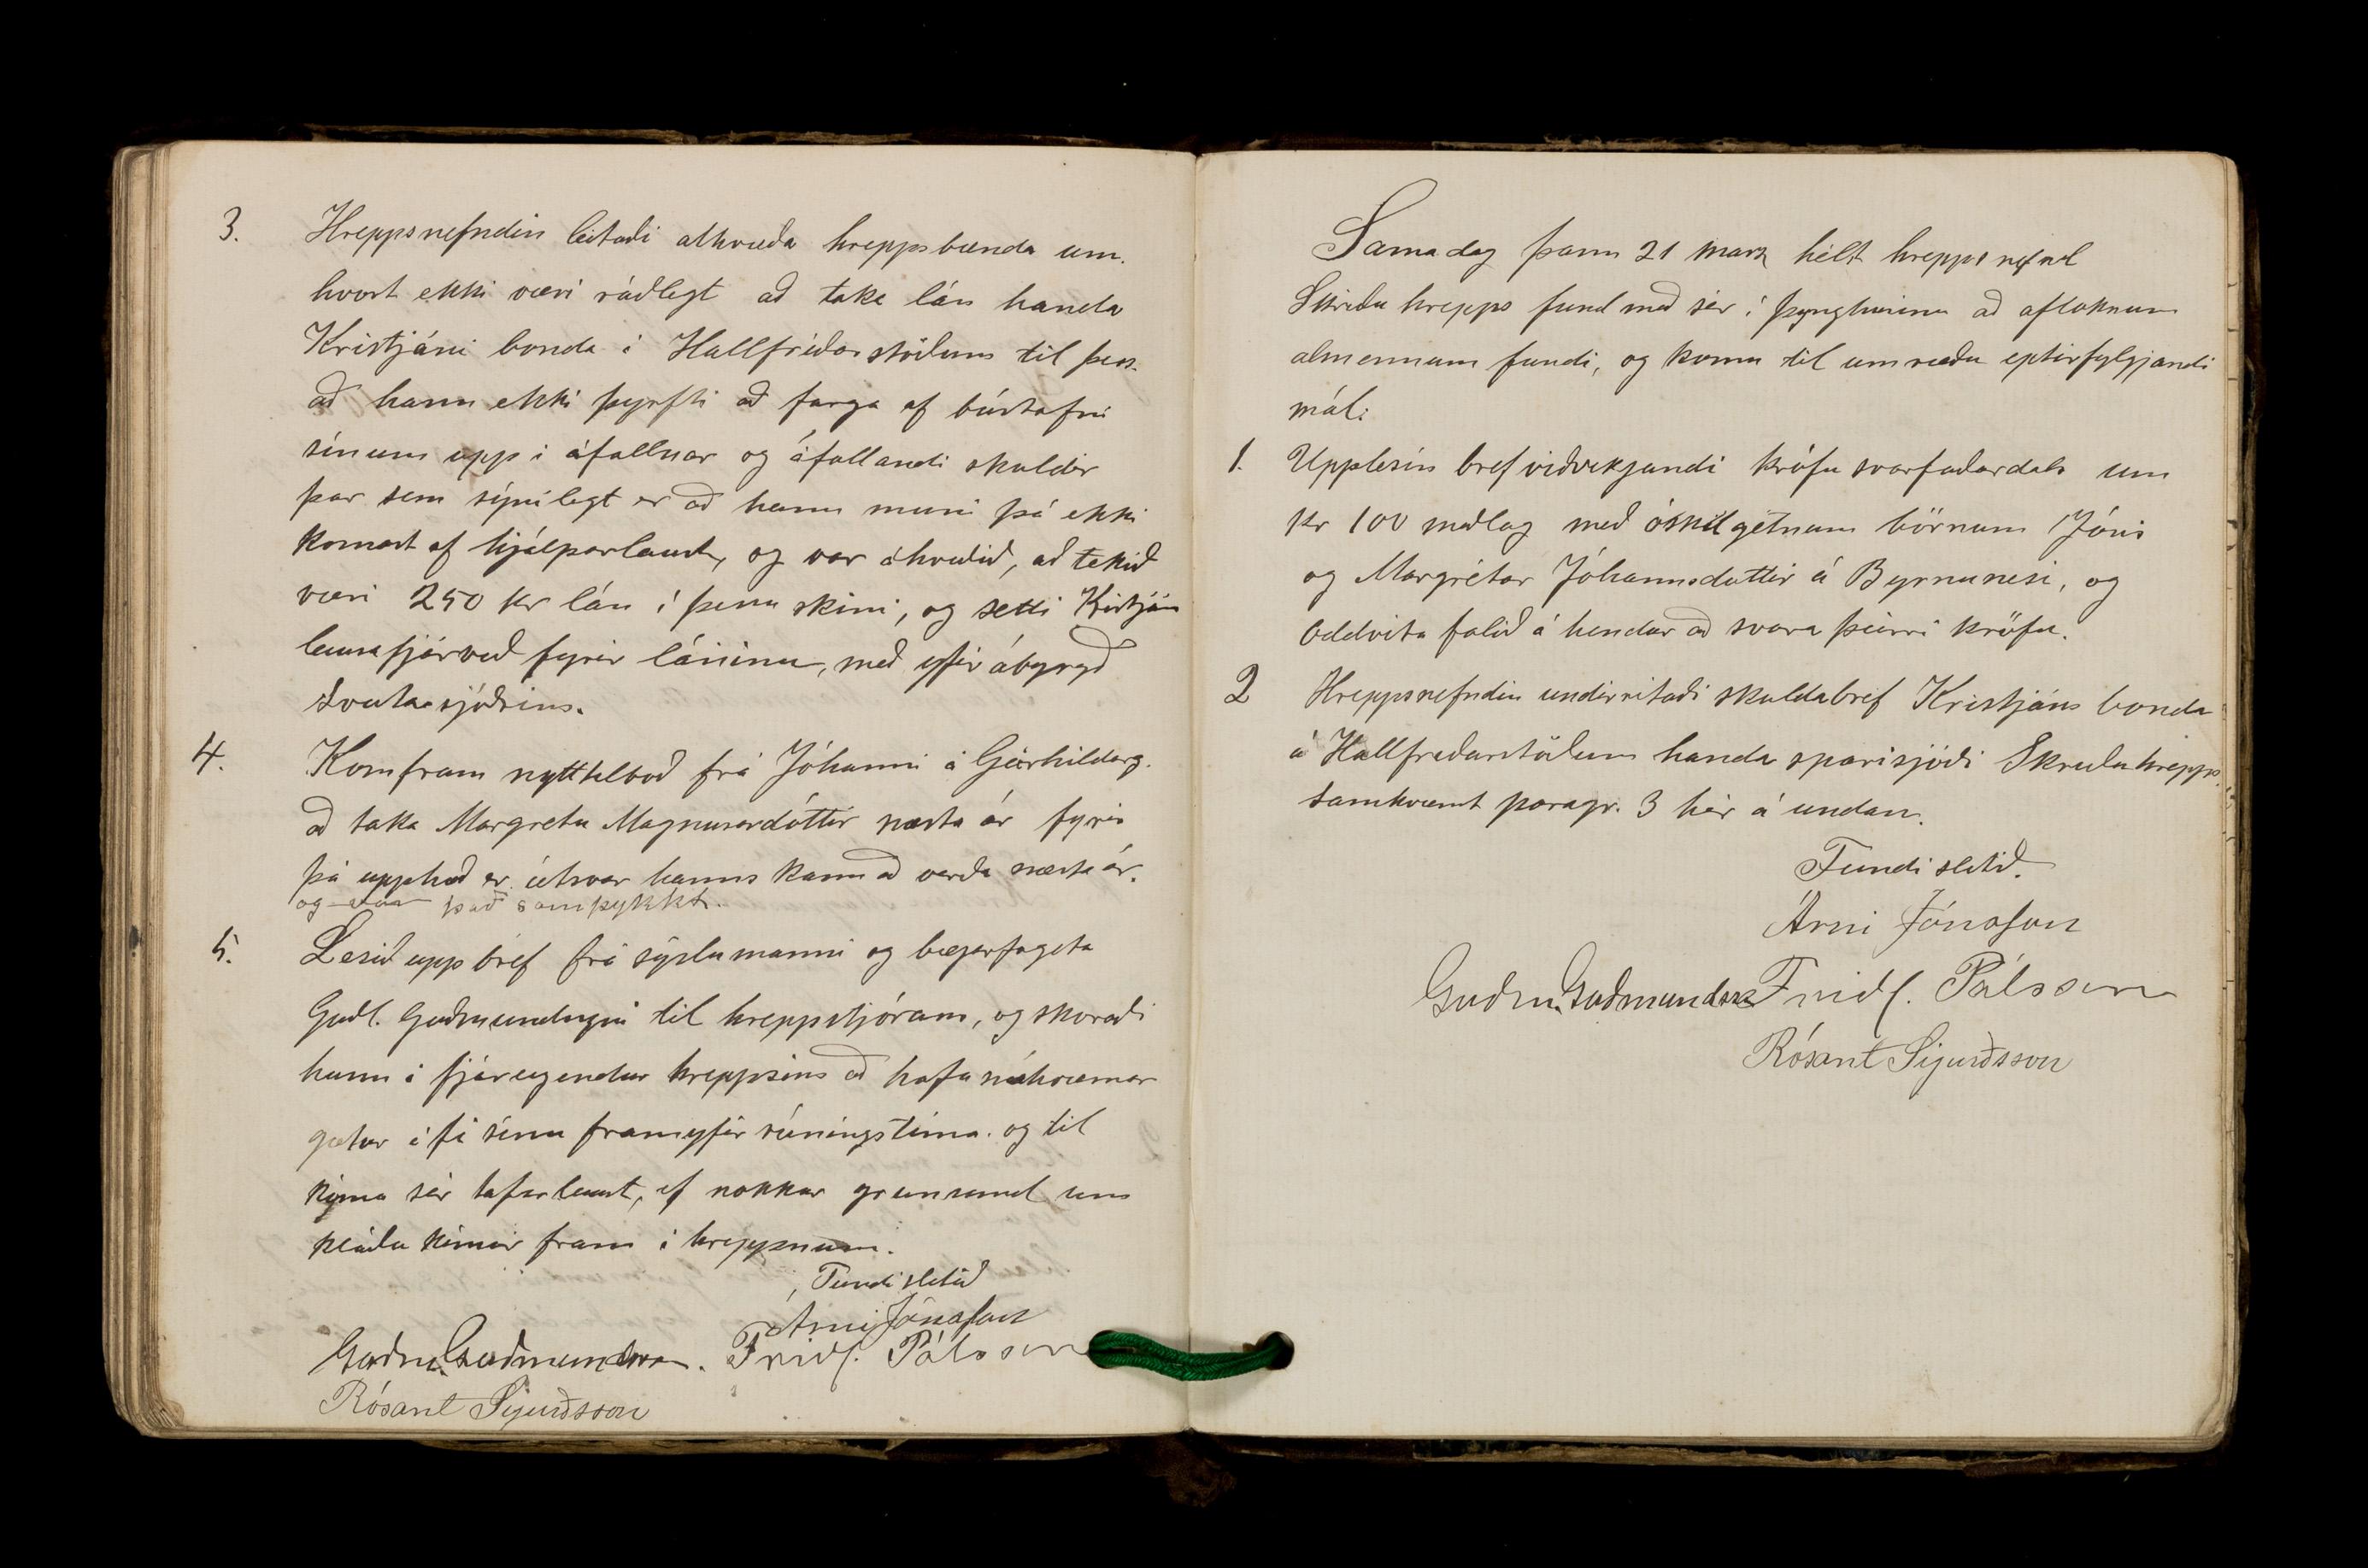 3. Hreppsnefndin leitaði atkvæða hreppsbænda um.
hvort ekki væri ráðlegt að taka lán handa
Kristjáni bonda á Hallfríðarstöðum til þess.
að hann ekki þyrfti að farga af bústofni
sínum upp í áfallnar og áfallandi skuldir
þar sem sýnilegt er að hann muni þá ekki
komast af hjálparlaust, og var ákveðið, að tekið
væri 250 kr lán í þenu skini, og setti Kristján
lausafjárveð fyrir láninu, með yfir ábyrgð
Sveitasjóðsins.
4. Kom fram nytt tilboð frá Jóhanni á Geirhildarg.
að taka Margretu Magnusardóttir næsta ár fyrir
þá upphæð er útsvar hanns kann að verða næsta ár.
og var það samþykkt.
5. Lesið upp bréf frá sýslumanni og bæjarfógeta
Guðl. Guðmundssyni til hreppstjórans, og skoraði
hann á fjáreigendur hreppsins að hafa nákvæmar
gætur á fé sínu framyfir rúningstíma. og til
kynna sér tafarlaust, ef nokkur grunsemd um
kláða kémur fram í hreppnum.
Fundi slitið
Árni Jónasson
Guðm. Guðmundsson. Friðf. Pálsson
Rósant Sigurðsson
Sama dag þann 21 marz hélt hreppsnefnd
Skriðuhrepps fund með sér í þynghúsinu að afloknum
almennum fundi, og komu til umræðu eptirfylgjandi
mál:
1. Upplesin bref viðvikjandi kröfu svarfaðardals um
kr 100 meðlag með óskilgetnum börnum Jóns
og Margrétar Jóhannsdottir á Byrnunesi, og
Oddvita falið á hendur að svara þeirri kröfu.
2 Hreppsnefndin undirritaði skuldabréf Kristjáns bonda
á Hallfreðarstöðum handa sparisjóði Skriðuhrepps
samkvæmt paragr. 3 hér á undan.
Fundi slitið.
Árni Jónasson
Guðm. Guðmundsson Friðf. Pálsson
Rósant Sigurðsson